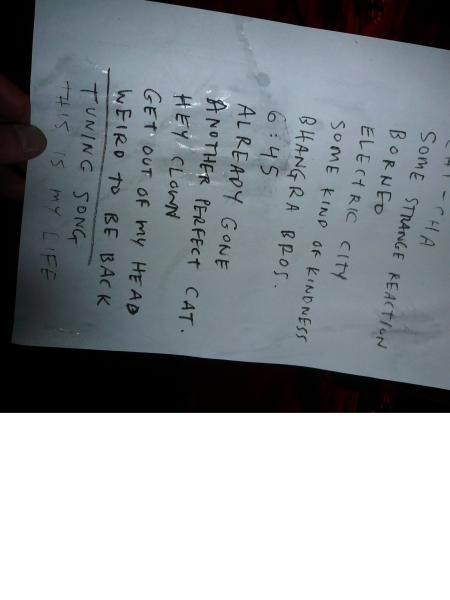 CHA
SOME STRANGE REACTION
BORNED
ELECTRIC CITY
SOME KIND OF KINDNESS
BHANGRA BROS.
6:45
ALREADY GONE
ANOTHER PERFECT CAT.
HEY CLOWN
GET OUT OF MY HEAD
WEIRD TO BE BACK
TUNING SONG
THIS IS MY LIFE